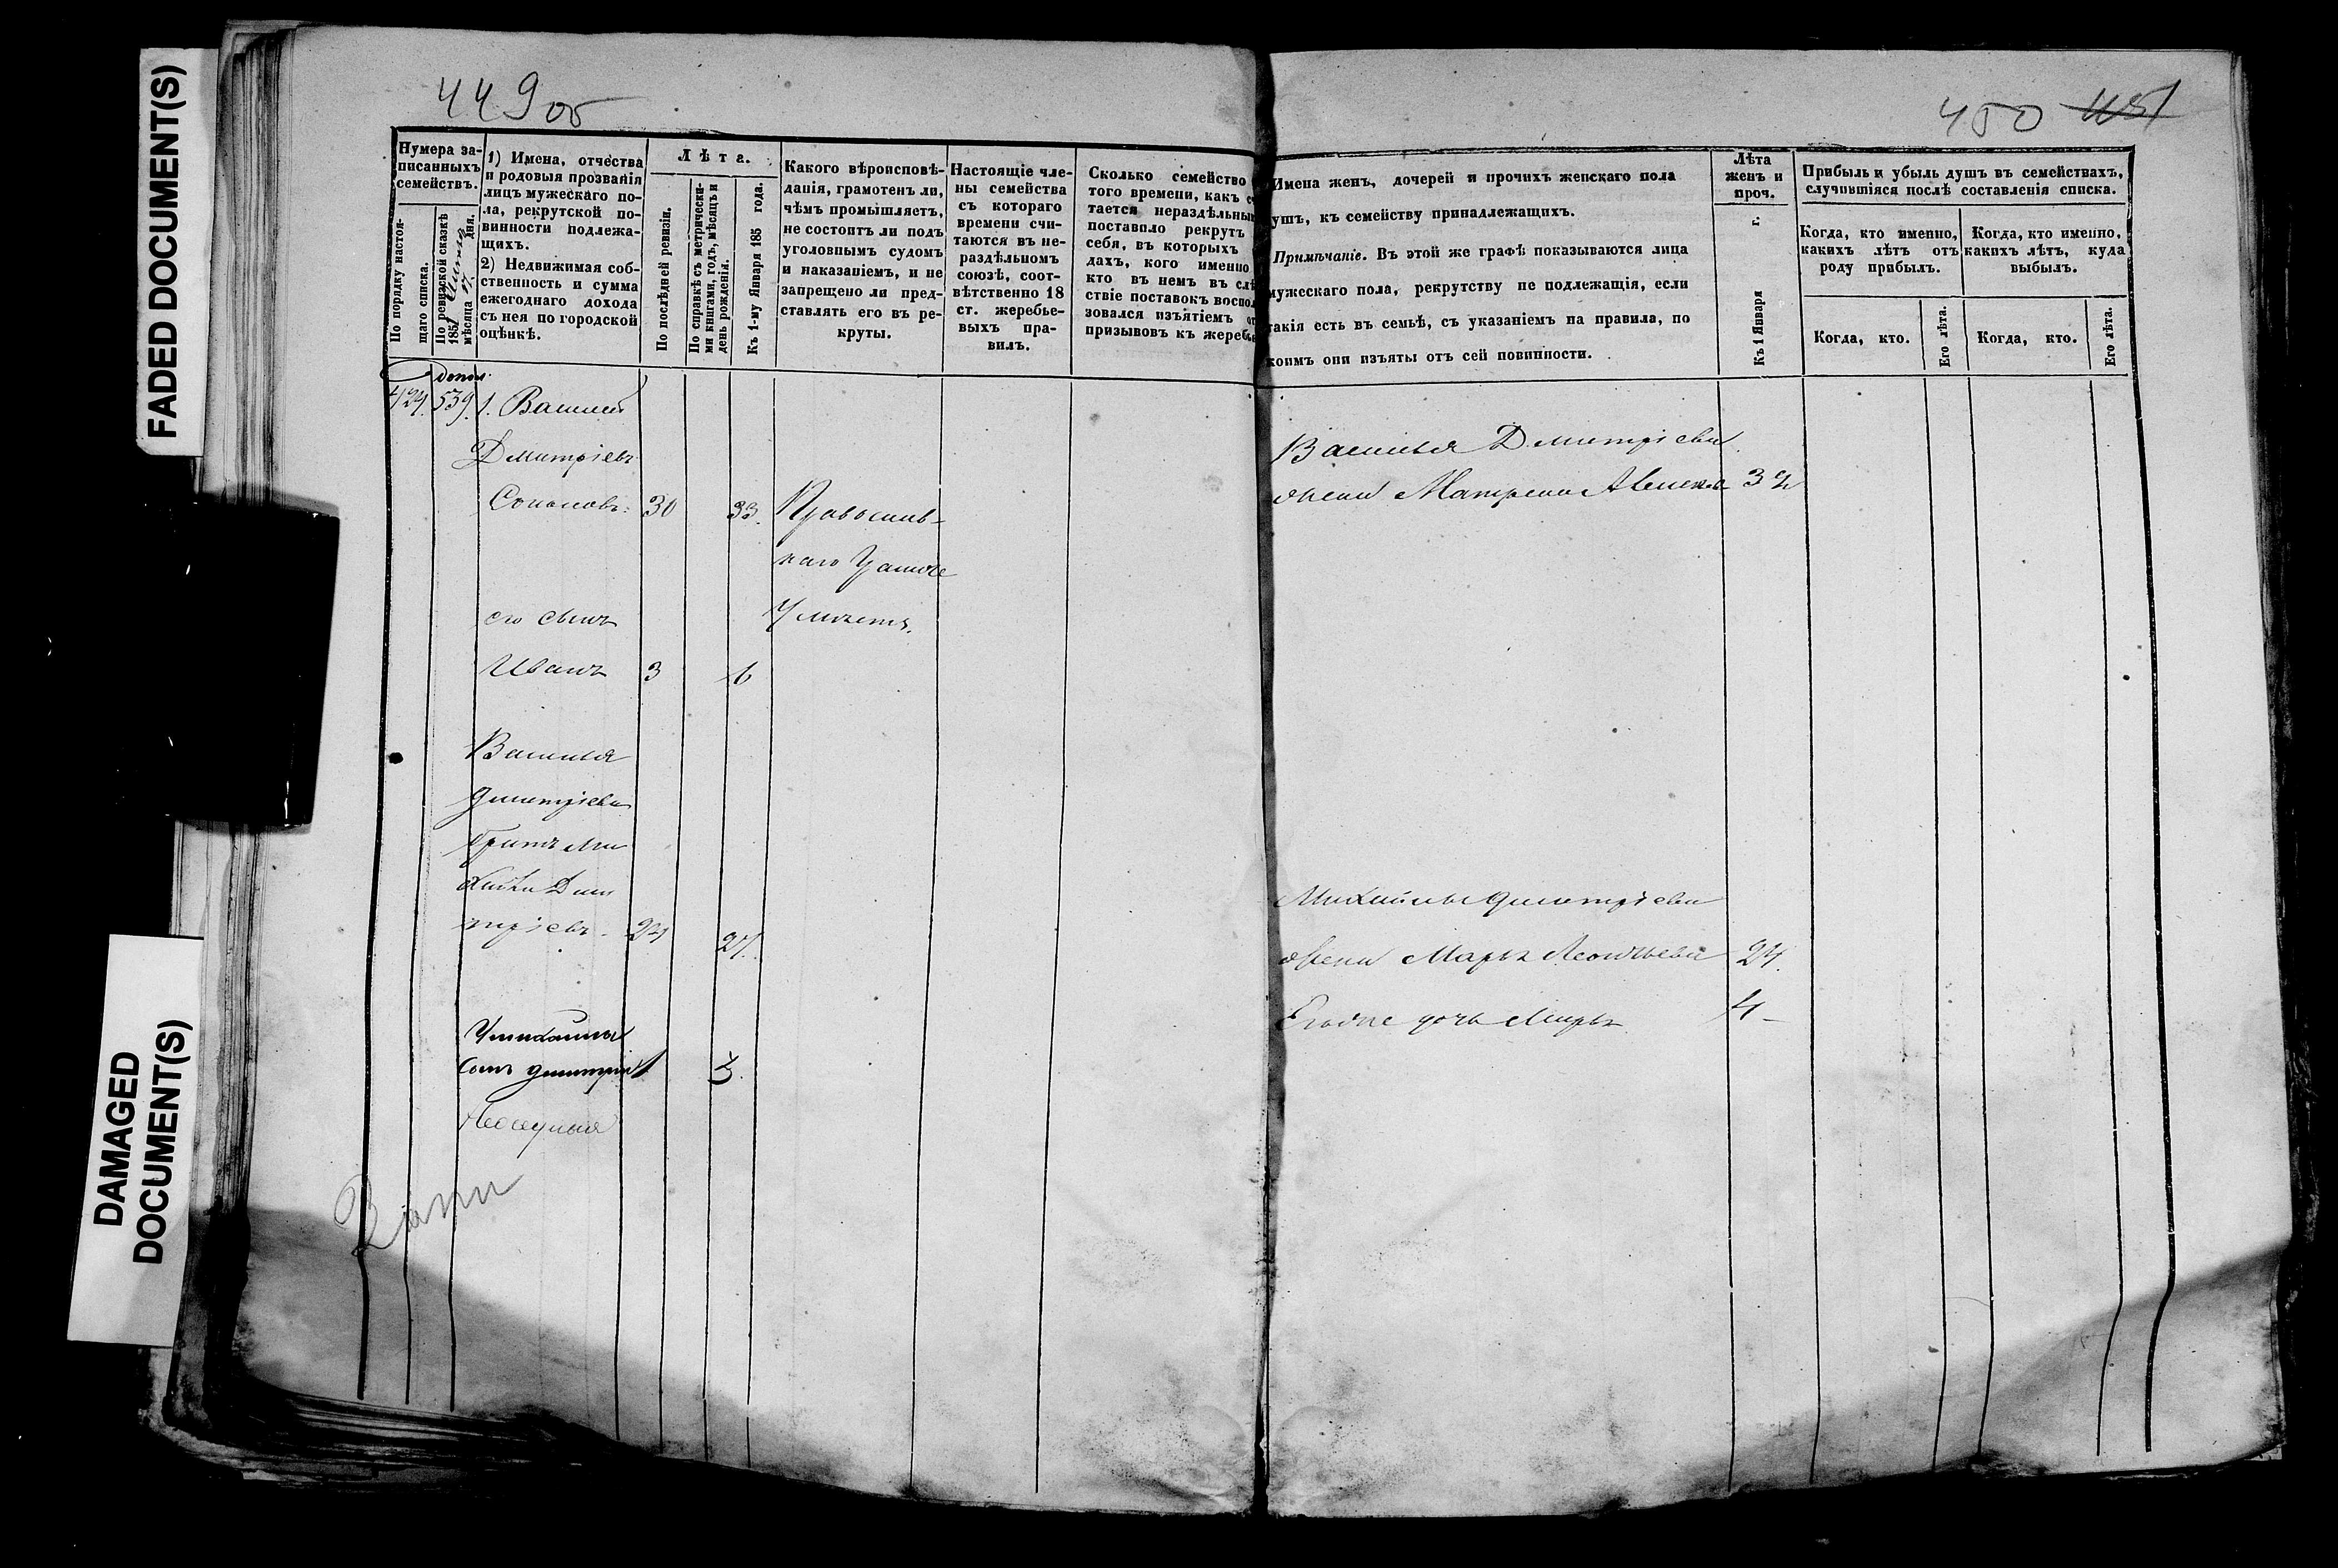 FADED DOCUMENT(S)
DAMAGED
DOCUMENT(S)
449об
Нумера за-
писанныхъ
семействъ.
По порядку настоя-
щаго списка.
По ревизской сказкѣ
1851
мѣсяца дня.
1) Имена, отчества
и родовыя прозванія
лицъ мужескаго по-
ла, рекрутской по-
винности подлежа-
щихъ.
2) Недвижимая соб-
ственность и сумма
ежегоднаго дохода
съ нея по городской
оцѣнкѣ.
Лѣта.
По послѣдней ревизіи.
По справкѣ съ метрически-
ми книгами, годъ, мѣсяцъ и
день рожденія.
Къ 1-му Января 185 года.
Какого вѣроисповѣ-
данія, грамотенъ ли,
чѣмъ промышляетъ,
не состоитъ ли подъ
уголовнымъ судомъ
и наказаніемъ, и не
запрещено ли пред-
ставлять его въ ре-
круты.
Настоящіе чле-
ны семейства
съ котораго
времени счи-
таются въ не-
раздѣльномъ
союзѣ, соот-
вѣтственно 18
ст. жеребье-
выхъ пра-
вилъ.
Сколько семейство
того времени, какъ с
тается нераздѣльны
поставило рекрутъ
себя, въ которыхъ
дахъ, кого именно
кто въ немъ въ слѣ
ствіе поставокъ воспол
зовался изъятіемъ от
призывовъ къ жеребье
допол.
424. 539. 1. Василій
Дмитріевъ
Соколовъ. 30 33. Православ-
наго
его сынъ
Иванъ 3 6
Василья
Дмитріева
братъ Ми
хайла Дми
тріевъ. 24 27.
У михайлы
Сынъ дмитрій 1 3.
450 451
Имена женъ, дочерей и прочихъ женскаго пола
ушъ, къ семейству принадлежащихъ.
Примѣчаніе. Въ этой же графѣ показываются лица
мужескаго пола, рекрутству не подлежащія, если
такія есть въ семьѣ, съ указаніемъ на правила, по
коимъ они изъяты отъ сей повинности.
Лѣта
женъ и
проч.
Къ 1 Января г.
Прибыль и убыль душъ въ семействахъ,
случившіяся послѣ составленія списка.
Когда, кто именно,
какихъ лѣтъ отъ
роду прибылъ.
Когда, кто именно,
какихъ лѣтъ, куда
выбылъ.
Когда, кто.
Его лѣта.
Когда, кто.
Его лѣта.
Василья Дмитріева
жена Матрена
Михайлы Дмитріева
жена Марья Леонтьева 24.
Ево же дочь Марья 4